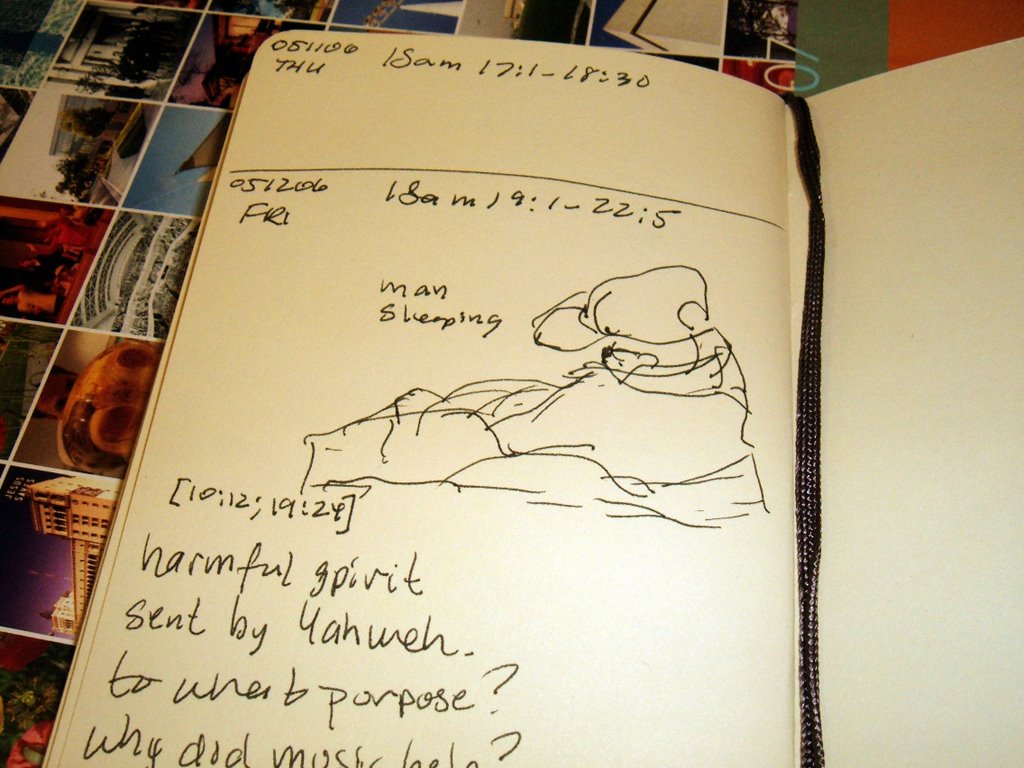 051106
THU
1Sam 17:1-18:30
051206
FRI
1Sam 19:1-22:5
man
sleeping
[10:12; 19:24]
harmful spirit
sent by Yahweh.
to what purpose?
why did music help?
JESUS
SAVES
07